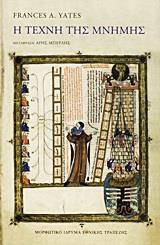 FRANCES A. YATES
Η ΤΕΧΝΗ ΤΗΣ ΜΝΗΜΗΣ
ΜΕΤΑΦΡΑΣΗ ΑΡΗΣ ΜΠΕΡΛΗΣ
ΜΟΡΦΩΤΙΚΟ ΙΔΡΥΜΑ ΕΘΝΙΚΗΣ ΤΡΑΠΕΖΗΣ